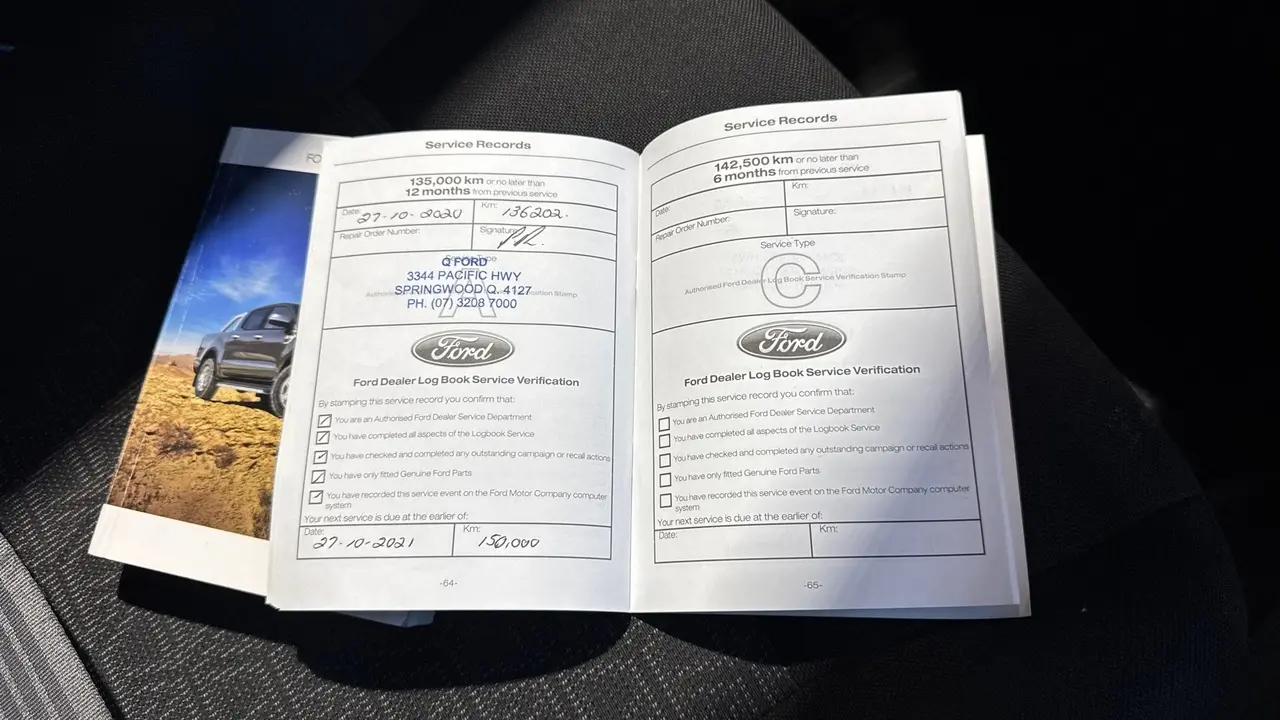 FO
Service Records
135,000 km or no later than
12 months from previous service
Date: 27-10-2020 Km: 136202.
Repair Order Number: Signature:
Service Type
A
Q FORD
3344 PACIFIC HWY
SPRINGWOOD Q. 4127
PH. (07) 3208 7000
Ford
Ford Dealer Log Book Service Verification
By stamping this service record you confirm that:
You are an Authorised Ford Dealer Service Department
You have completed all aspects of the Logbook Service
You have checked and completed any outstanding campaign or recall actions
You have only fitted Genuine Ford Parts
You have recorded this service event on the Ford Motor Company computer
system
Your next service is due at the earlier of:
Date: 27-10-2021 Km: 150,000
-64-
Service Records
142,500 km or no later than
6 months from previous service
Date: Km:
Repair Order Number: Signature:
Service Type
C
Authorised Ford Dealer Log Book Service Verification Stamp
Ford
Ford Dealer Log Book Service Verification
By stamping this service record you confirm that:
You are an Authorised Ford Dealer Service Department
You have completed all aspects of the Logbook Service
You have checked and completed any outstanding campaign or recall actions
You have only fitted Genuine Ford Parts
You have recorded this service event on the Ford Motor Company computer
system
Your next service is due at the earlier of:
Date: Km:
-65-